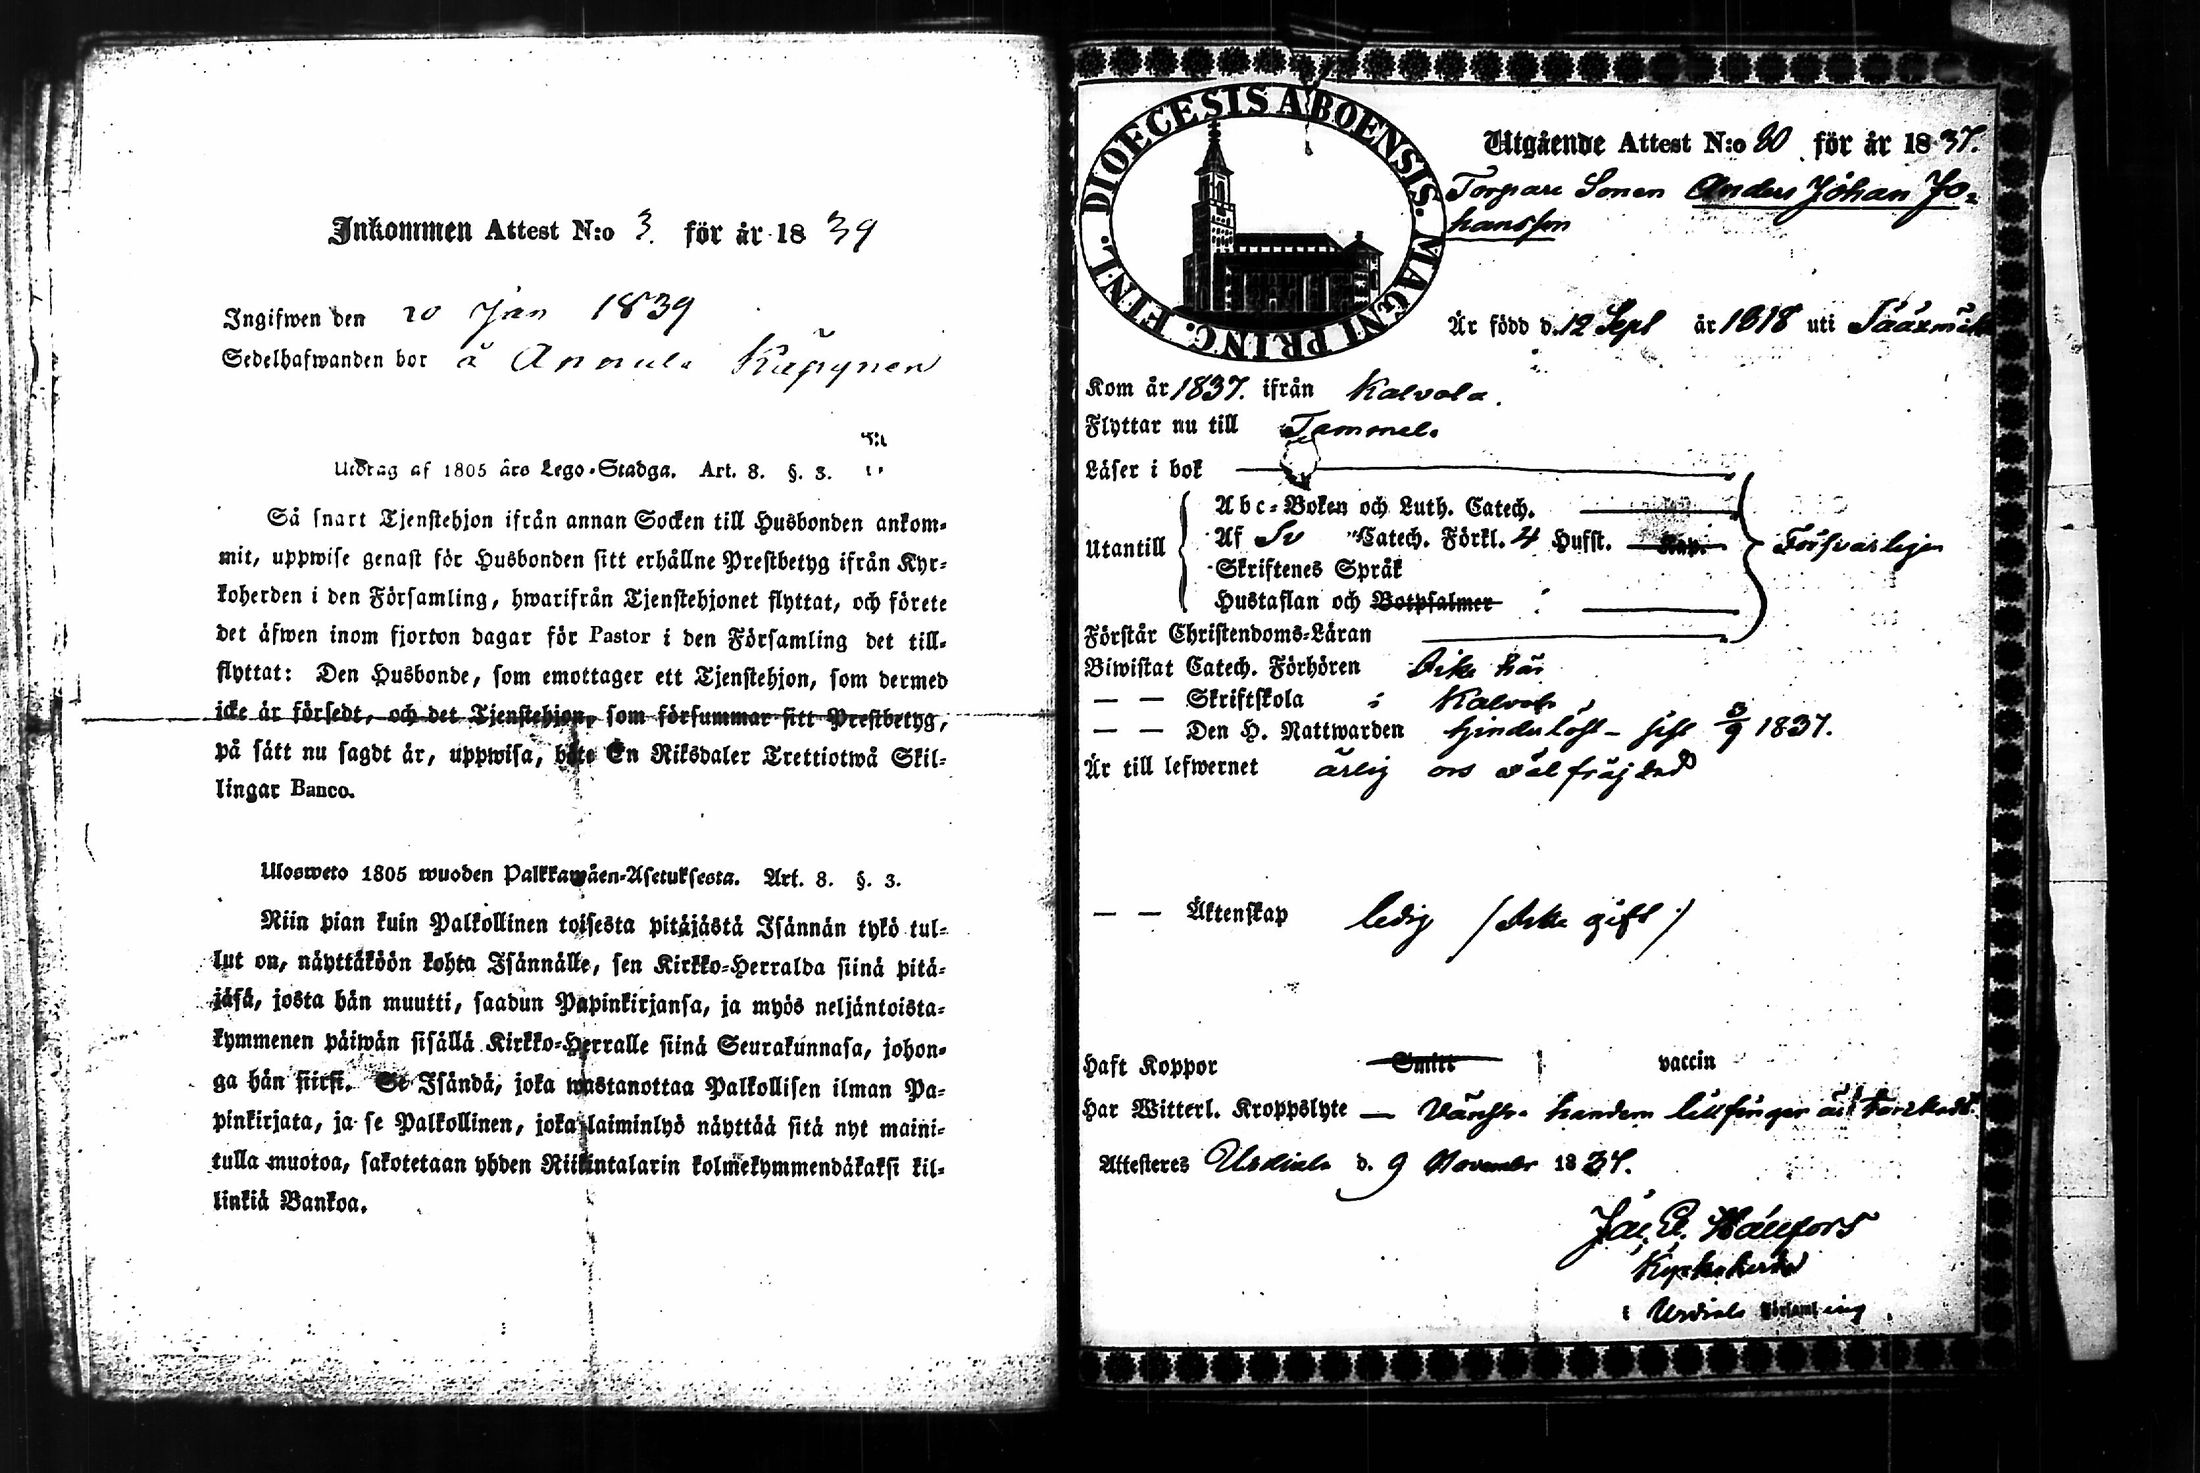 Inkommen Attest N:o 3. för år 1839
Ingifwen den 20 Jan 1839
Sedelhafwanden bor å Annula Käpynen
Utdrag af 1805 års Lego-Stadga. Art. 8. §. 3.
Så snart Tjenstehjon ifrån annan Socken till Husbonden ankom-
mit, uppwise genast för Husbonden sitt erhållne Prestbetyg ifrån Kyr-
koherden i den Församling, hwarifrån Tjenstehjonet flyttat, och förete
det äfwen inom fjorton dagar för Pastor i den Församling det till-
flyttat: Den Husbonde, som emottager ett Tjenstehjon, som dermed
icke är försedt, och det Tjenstehjon, som försummar sitt Prestbetyg,
på sätt nu sagdt är, uppwisa, böte En Riksdaler Trettiotwå Skil-
lingar Banco.
Ulosweto 1805 wuoden Palkkawäen-Asetuksesta. Art. 8. §. 3.
Niin pian kuin Palkollinen toisesta pitäjästä Isännän tykö tul-
lut on, näyttäköön kohta Isännälle, sen Kirkko-Herralda siinä pitä-
jäsä, josta hän muutti, saadun Papinkirjansa, ja myös neljäntoista-
kymmenen päiwän sisällä Kirkko-Herralle siinä Seurakunnasa, johon-
ga hän siirsi. Se Isändä, joka wastanottaa Palkollisen ilman Pa-
pinkirjata, ja se Palkollinen, joka laiminlyö näyttää sitä nyt maini-
tulla muotoa, sakotetaan yhden Riikintalarin kolmekymmendäkaksi kil-
linkiä Bankoa.
DIOECESIS ABOENSIS. MAGNI PRINC. FINL.
Utgående Attest N:o 90 för år 1837.
Torpare Sonen Anders Johan Jo-
hansson
Är född d. 12 Sept år 1818 uti Sääxmäki
Kom år 1837. ifrån Kalvola.
Flyttar nu till Tammela
Läser i bok
Abc-Boken och Luth. Catech.
Utantill Af Sv Catech. Förkl. 4 Hufst. Kap. Försvarligen
Skriftenes Språk
Hustaflan och Botpsalmer
Förstår Christendoms-Läran
Biwistat Catech. Förhören Icke här
— — Skriftskola i Kalvola
— — Den H. Nattwarden hinderlöst - sist 3/9 1837.
Är till lefwernet ärlig och välfräjdad
— — Äktenskap ledig /: Icke gift :/
Haft Koppor Smitt vaccin
Har Witterl. Kroppslyte — Vänstra handens lillfinger är
Attesteres Urdiala d. 9 November 1837.
Jac. E. Hällfors
Kyrkoherde
i Urdiala Församling.